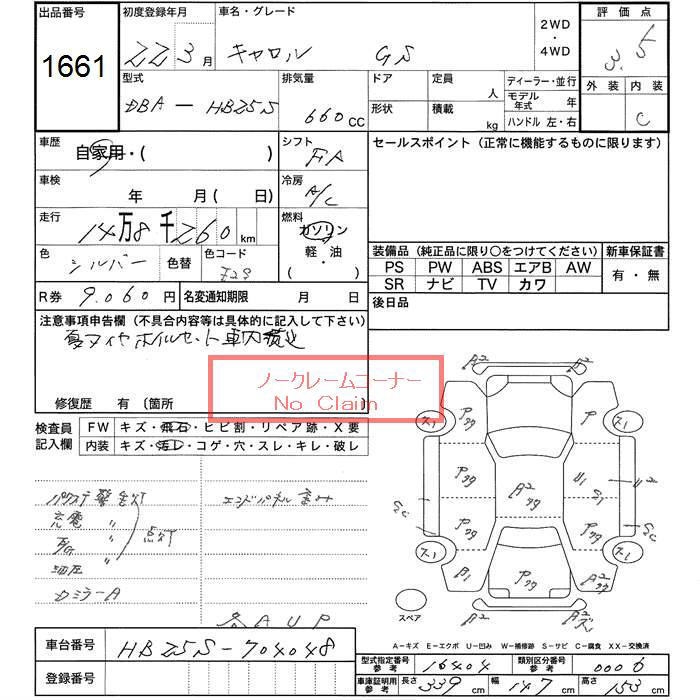 出品番号 初度登録年月 車名・グレード 2WD・4WD 評価点
1661 22 3月 キャロル GS 3.5
型式 排気量 ドア 定員 人 ディーラー・並行 外装 内装
DBA-HB25S 660CC 形状 積載 kg モデル年式 年 C
ハンドル 左・右
車歴 自家用・( ) シフト FA セールスポイント(正常に機能するものに限ります)
車検 年 月( 日) 冷房 A/C
走行 14万8千260km 燃料 ガソリン
軽・油
・( )
色 シルバー 色替 色コード
装備品(純正品に限り○をつけてください) 新車保証書
PS PW ABS エアB AW 有・無
SR ナビ TV カワ
R券 9.060円 名変通知期限 月 日 後日品
注意事項申告欄(不具合内容等は具体的に記入して下さい)
夏タイヤホイルセット車内積込
ノークレームコーナー
No Claim
修復歴 有〔箇所 〕
検査員記入欄 FW キズ・飛石・ヒビ割・リペア跡・X要
内装 キズ・汚レ・コゲ・穴・スレ・キレ・破レ
パワステ警告灯
充電 〃
〃 点灯
油圧 〃
A2
A2
P77
P
P77
A2 77
U1
P77
P77
B1
P77
A2
A2
スペア
A-キズ E-エクボ U-凹み W-補修跡 S-サビ C-腐食 XX-交換済
車台番号 HB25S-704048
登録番号
型式指定番号参考 16404 類別区分番号参考 0006
車庫証明用参考 長さ 339cm 幅 147cm 高さ 153cm